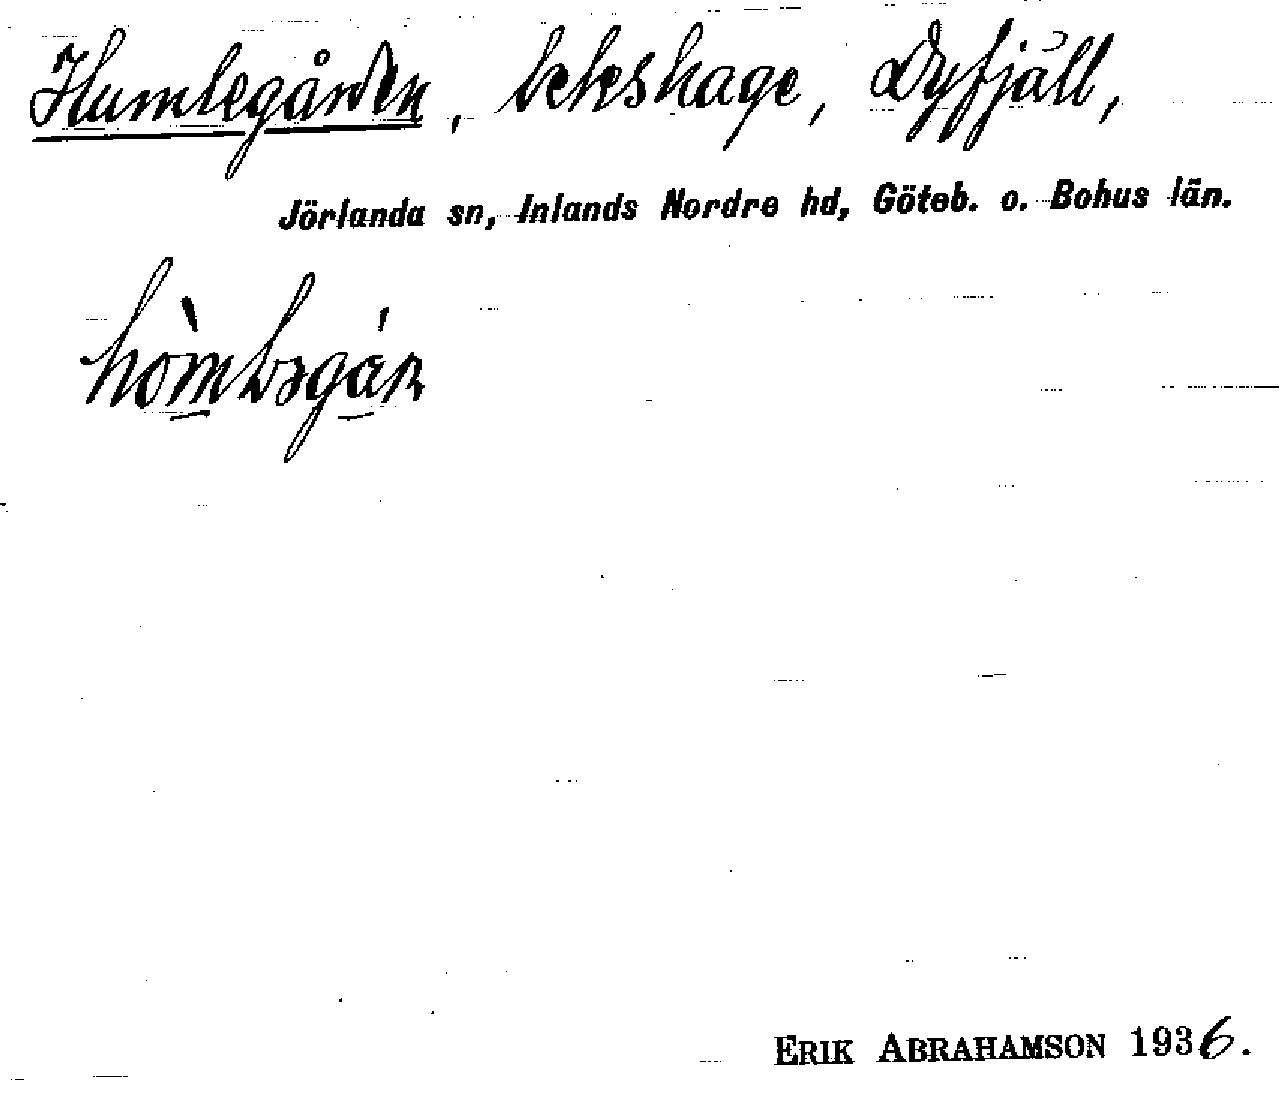 Humlegården, lekshage, Dyfjäll,
Jörlanda sn, Inlands Nordre hd, Göteb. o. Bohus län.
ERIK ABRAHAMSON 1936.